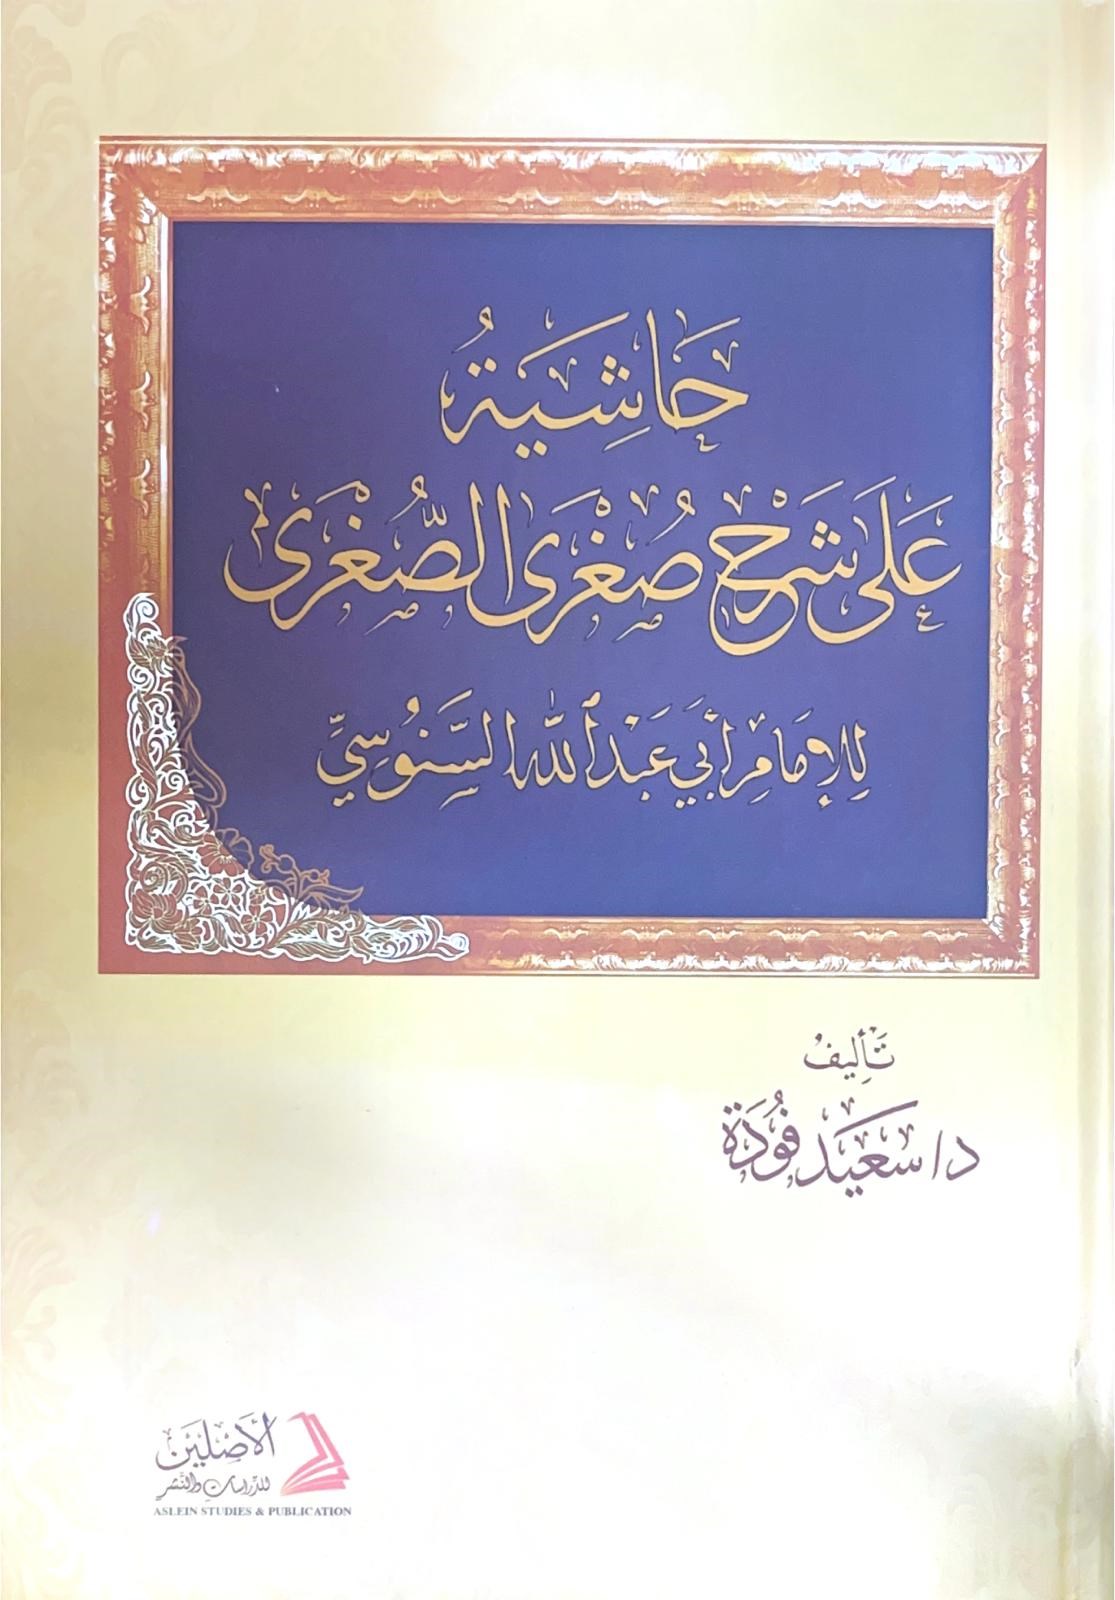 حَاشِيَةُ
عَلَى شَرْحِ صُغْرَى الصُّغْرَى
لِلإِمَامِ أَبِي عَبْدِ اللّٰهِ السَّنُوسِيِّ
تَأْلِيفُ
د/ سَعِيد فُودَة
الأَصْلَيْن
للدِّرَاسَاتِ وَالنَّشْرِ
ASLEIN STUDIES & PUBLICATION